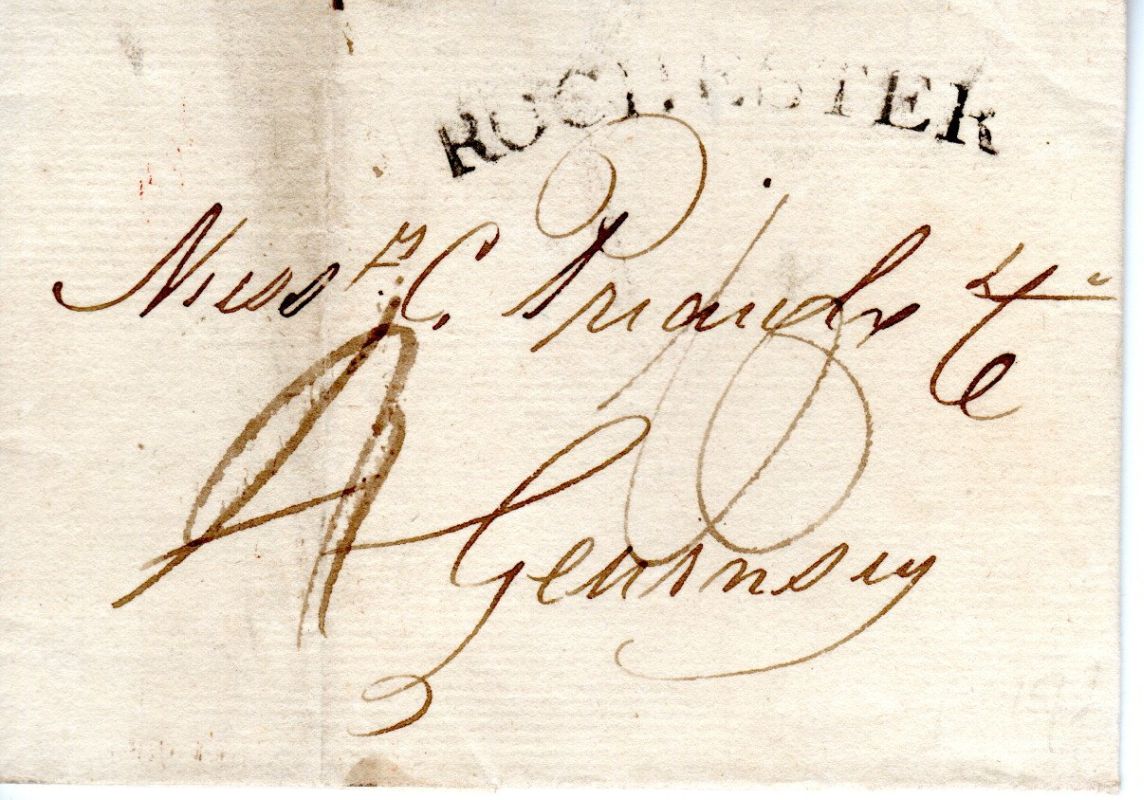 ROCHESTER
Messrs. C. Priaulx & Co
Guernsey